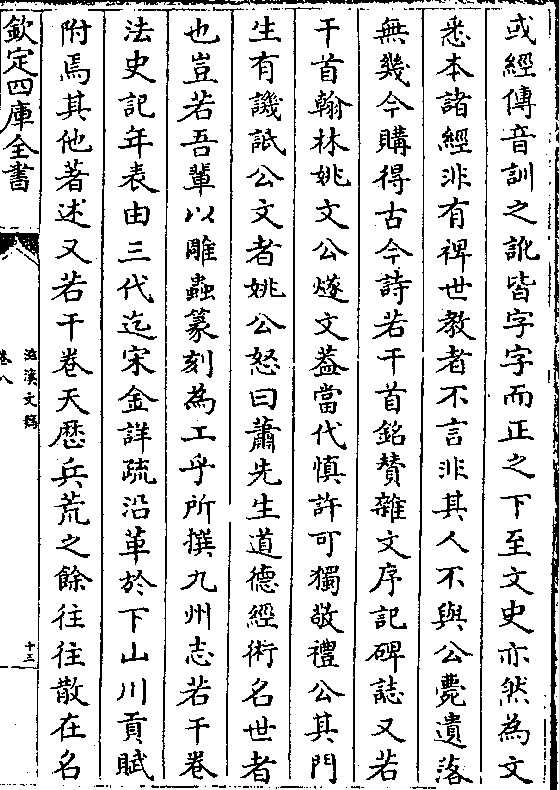 或經傳音訓之訛皆字字而正之下至文史亦然為文
悉本諸經非有裨世教者不言非其人不與公薨遺落
無幾今購得古今詩若干首銘賛雜文序記碑誌又若
干首翰林姚文公燧文葢當代慎許可獨敬禮公其門
生有譏詆公文者姚公怒曰蕭先生道德經術名世者
也豈若吾輩以雕蟲篆刻為工乎所撰九州志若干卷
法史記年表由三代迄宋金詳疏沿革於下山川貢賦
附焉其他著述又若干卷天厯兵荒之餘往往散在名
欽定四庫全書
滋溪文稿
卷八
十三